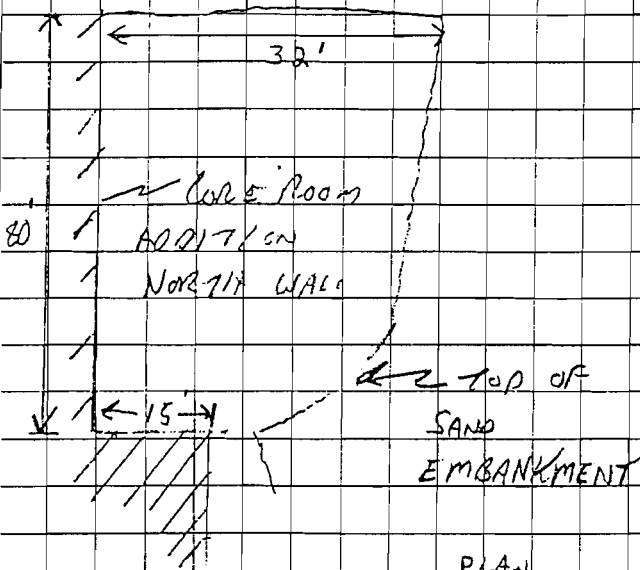 32'
CORE ROOM
80'
ADDITION
NORTH WALL
TOP OF
15'
SAND
EMBANKMENT
PLAN